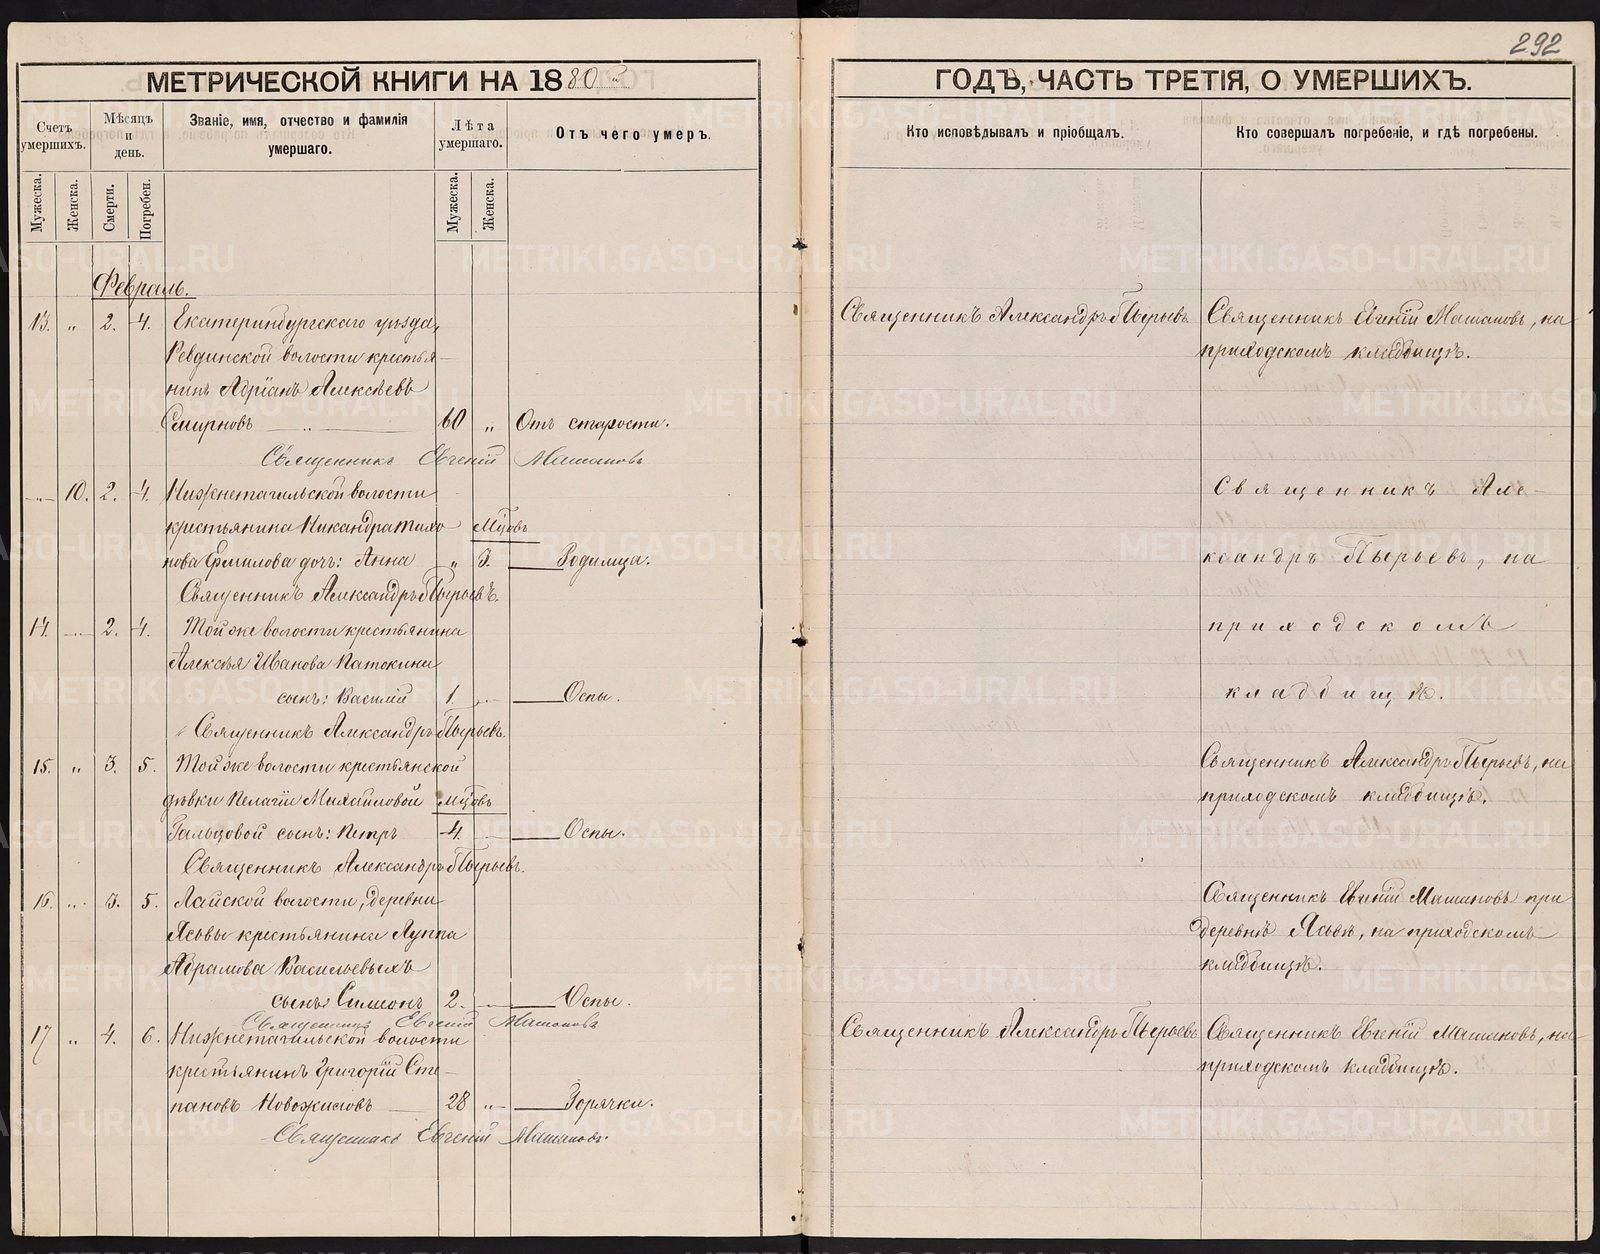 292
МЕТРИЧЕСКОЙ КНИГИ НА 1880й
ГОДЪ, ЧАСТЬ ТРЕТІЯ, О УМЕРШИХЪ.
Счетъ умершихъ.
Мѣсяцъ и день.
Званіе, имя, отчество и фамилія умершаго.
Лѣта умершаго.
Отъ чего умеръ.
Кто исповѣдывалъ и пріобщалъ.
Кто совершалъ погребеніе, и гдѣ погребены.
Мужеска.
Женска.
Смерти.
Погребен.
Мужеска.
Женска.
Февраль.
13. „ 2. 4. Екатеринбургскаго уѣзда,
Ревдинской волости крестья-
нинъ Адріанъ Алексѣевъ
Смирновъ — „ — 60 „ Отъ старости.
Священникъ Евгеній Машановъ
Священникъ Александръ Пырьевъ
Священникъ Евгеній Машановъ, на
приходскомъ кладбищѣ.
„ 10. 2. 4. Нижнетагильской волости
крестьянина Никандра Тихо- Мцовъ
нова Ермилова дочь: Анна „ 3. — Родимца.
Священникъ Александръ Пырьевъ.
14. „ 2. 4. Той же волости крестьянина
Алексѣя Иванова Патокина
сынъ: Василій 1. „ — Оспы.
Священникъ Александръ Пырьевъ.
Священникъ Але-
ксандръ Пырьевъ, на
приходскомъ
кладбищѣ.
15. „ 3. 5. Той же волости крестьянской
дѣвки Пелагіи Михайловой мцовъ
Гальцовой сынъ: Петръ 4. — Оспы.
Священникъ Александръ Пырьевъ.
Священникъ Александръ Пырьевъ, на
приходскомъ кладбищѣ.
16. „ 3. 5. Лайской волости, деревни
Ясьвы крестьянина Луппа
Абрамова Васильевыхъ
сынъ: Симеонъ 2. — Оспы.
Священникъ Евгеній Машановъ
Священникъ Евгеній Машановъ при
деревнѣ Ясьвѣ, на приходскомъ
кладбищѣ.
17 „ 4. 6. Нижнетагильской волости
крестьянинъ Григорій Сте-
пановъ Новожиловъ — 28 „ — Горячки.
Священникъ Евгеній Машановъ.
Священникъ Александръ Пырьевъ
Священникъ Евгеній Машановъ, на
приходскомъ кладбищѣ.
METRIKI.GASO-URAL.RU